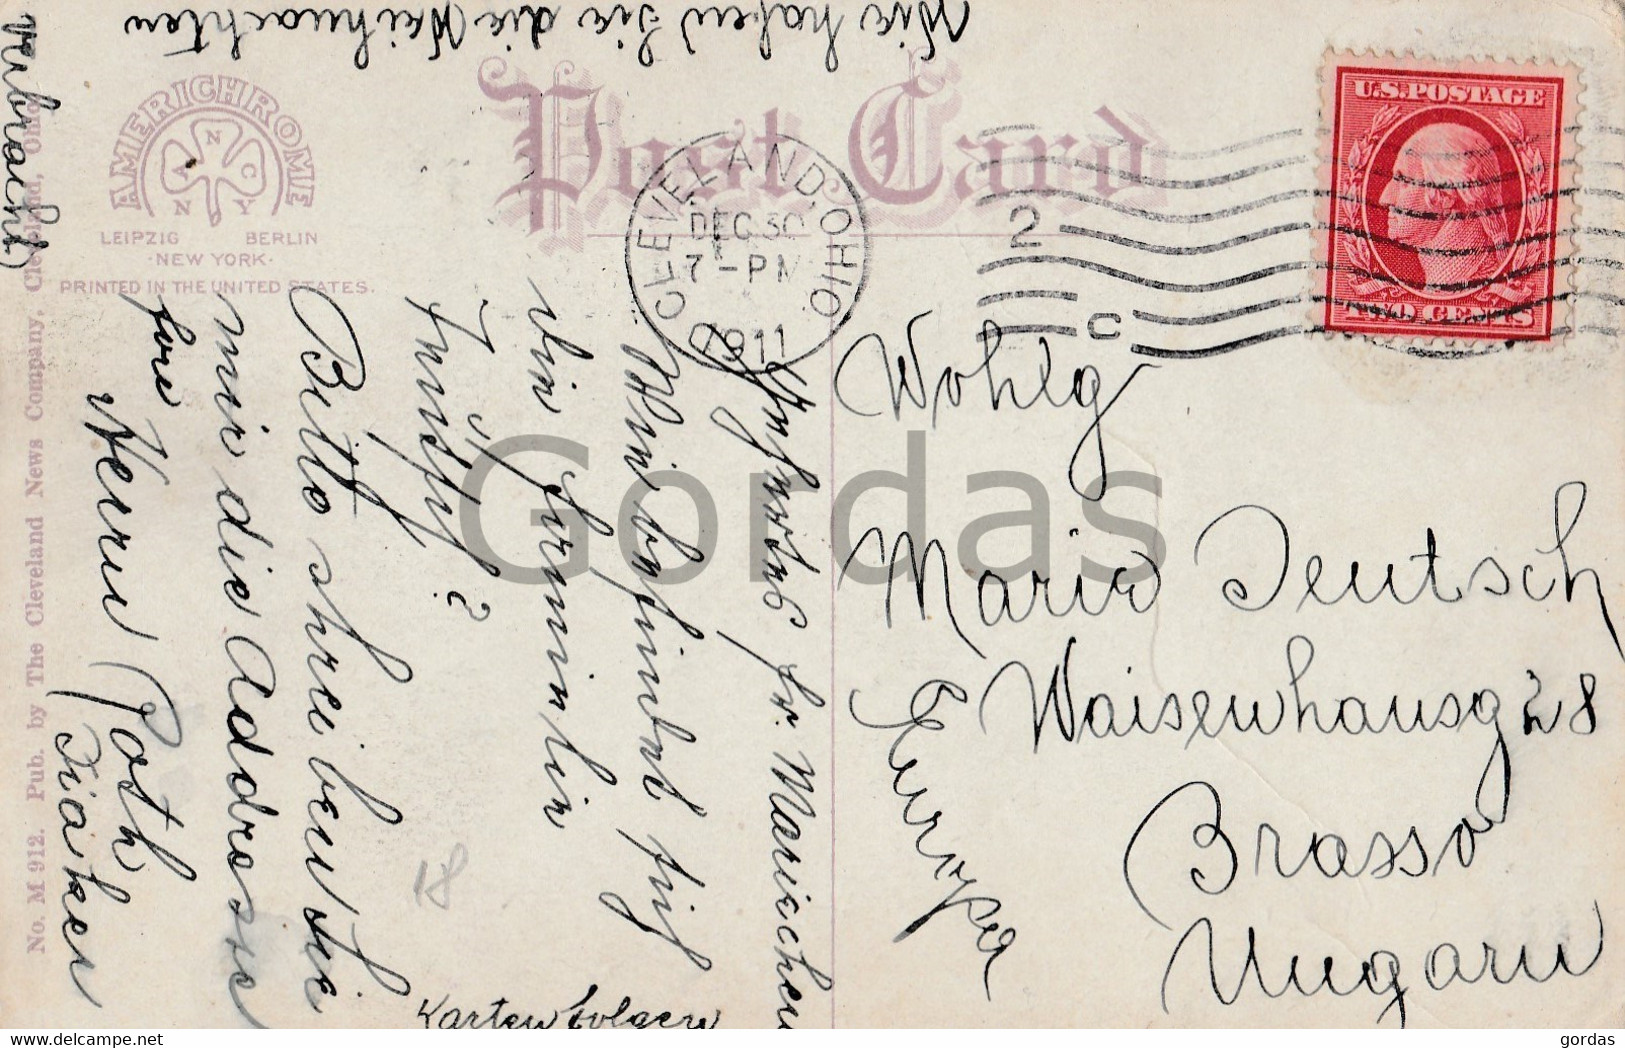 Wie haben Sie die Weihnachten
verbracht
AMERICHROME
ANNCY
LEIPZIG BERLIN
·NEW YORK·
PRINTED IN THE UNITED STATES.
Post Card
CLEVELAND, OHIO
DEC 30
7-PM
1911
2
C
U.S. POSTAGE
TWO CENTS
No. M 912. Pub. by The Cleveland News Company, Cleveland, Ohio
Geehrtes Fr. Mariechen
Wie befindet sich
die Familie
Bitte schreiben Sie
mir die Addresse
Herrn Roth
Karten folgen
18
Wohlg
Marie Deutsch
Waisenhausg 28
Brasso
Ungarn
Europa
Gordas
gordas
delcampe.net